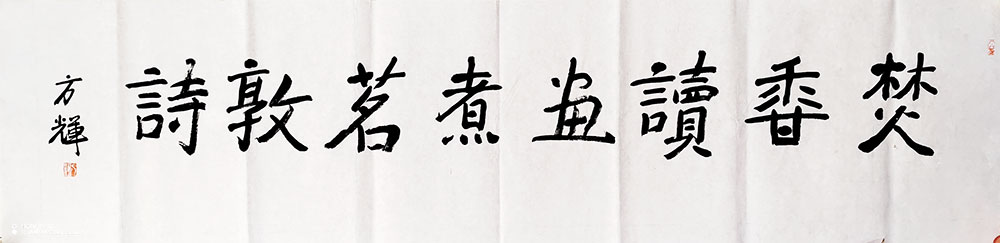 焚香讀畫煮茗敦詩
方輝